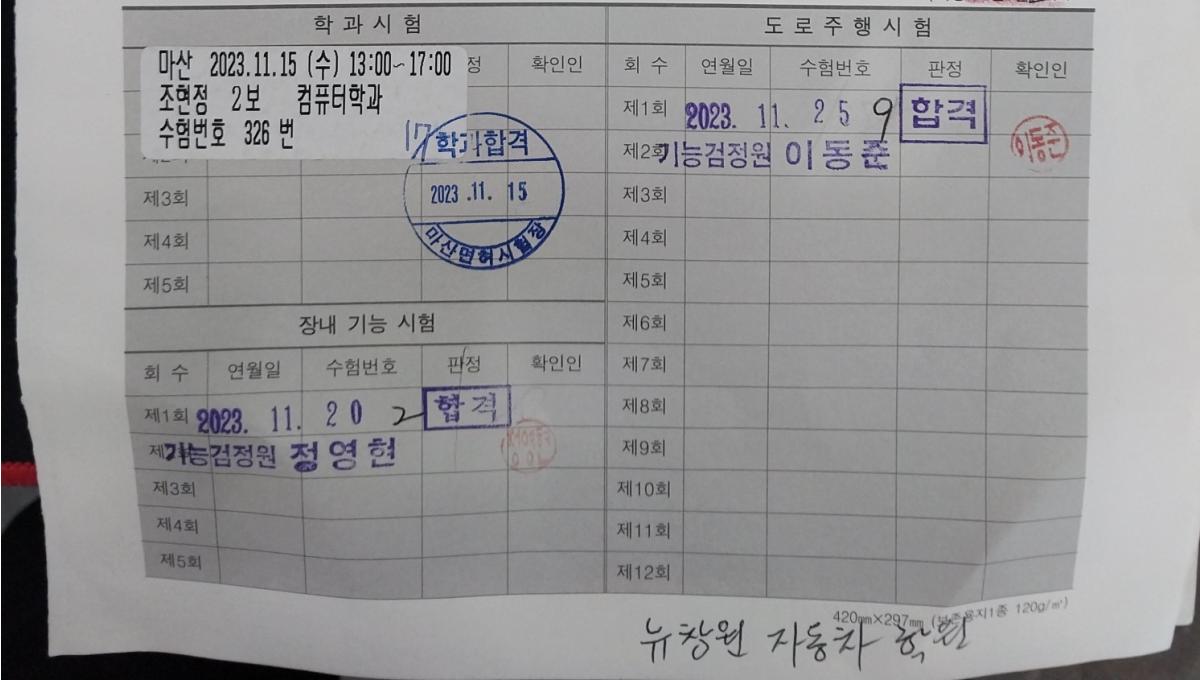 학과시험
마산 2023.11.15 (수) 13:00~17:00
조현정 2보 컴퓨터학과
수험번호 326 번
정 확인인
17
학과합격
2023 .11. 15
마산면허시험장
제3회
제4회
제5회
장내 기능 시험
회 수 연월일 수험번호 판정 확인인
제1회 2023. 11. 20 2 합격
기능검정원 정영현
제3회
제4회
제5회
도로주행시험
회 수 연월일 수험번호 판정 확인인
제1회 2023. 11. 25 9 합격
제2회 기능검정원 이동준
이동준
제3회
제4회
제5회
제6회
제7회
제8회
제9회
제10회
제11회
제12회
420㎜×297㎜ (보존용지1종 120g/㎡)
뉴창원 자동차 학원